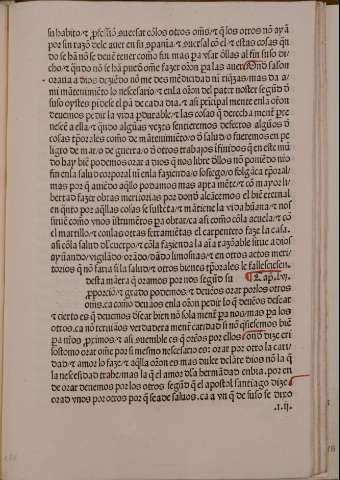 su habito/ & p̃fessiõ ɔuersar cõlos otros oms̃/ & q̃ los otros nõ ayã
por sin razõ dele auer en su ɔpania/ & ɔuersal cõ el/ & estas cosas q̃n
do se hã nõ se deuẽ tener como fin mas pa vsar õllas al fin suso di
cho/ & q̃ndo nõ se hã puedẽ om̃e fazer orõn pa las auer Onð salon
oraua a dios dezieñdo nõ me des mẽdicidad ni riq̃zas/ mas da a/
mi mãtenimiẽto lo necessario/ & enla orõn del pater noster segũd õ
suso oystes pidese el pã de cada dia. & asi principal mente enla orõn
deuemos pedir la vida pdurable/ & las cosas que derecha mente pre
nescẽ a ella/ & q̃ndo algũas vezes sentieremos defectos algũos õ
cosas tp̃orales como de mãtenimiẽto/ o õ salud/ o fueremos en pe
ligro de mar/ o de guerra/ o õ otros trabajos ifinidos q̃ en este mũ
do hay biẽ podemos orar a dios q̃ nos libre õllos nõ poniẽdo nr̃o
fin enla salud corporal ni enla fazienda/ o sosiego/ o folgãça tp̃oral/
mas por q̃ auiẽdo aq̃llo podamos mas apta mẽte/ & cõ mayor li/
bertad fazer obras meritorias por donð alcãcemos el biẽ eternal
en q̃nto por aq̃llas cosas se sustẽta/ & mãtiene la vida hũana/ & nos
siruẽ como vnos ĩstrumẽtos pa obrar/ ca asi como cõla açuela/ & cõ
el martillo/ & conlas otras ferramiẽtas el carpentero faze la casa.
asi cõla salud dl̃ cuerpo/ & cõla fazienda la aĩa razõable sirue a dios
ayũando/ vigilãdo orãdo/ dãdo limosnas/ & en otros actos meri/
torios q̃ nõ faria si la salud/ & otros bienes tp̃orales le fallesciesen.
desta mãera q̃ oramos por nos segũd su ¶ Cap. lvj.
pporciõ/ & grado podemos/ & deuẽos orar por los otros
oms̃. ca como deuẽos enla orõn pedir lo q̃ deuẽos desear
& cierto es q̃ deuemos dsear bien nõ sola mente pa nos/ mas pa los
otros. ca nõ terniãos verdadera ment caridad si nõ q̃siesemos biẽ
pa nr̃os primos/ & asi ɔuenible es q̃ orẽos por ellos/ onð dize cri
sostomo orar om̃e por si mesmo necessario es: orar por otro la cari/
dad/ & amor lo faze/ & aq̃lla orõn es mas dulce delãte dios nõ la q̃
la nescesidad trahe/ mas la q̃ el amor dla hermãdad enbia. por en
de orar deuemos por los otros segũd q̃ el apostol santiago dize
orad vnos por otros por q̃ sea de saluos. ca a vn q̃ de suso se dixo
.i.ij.